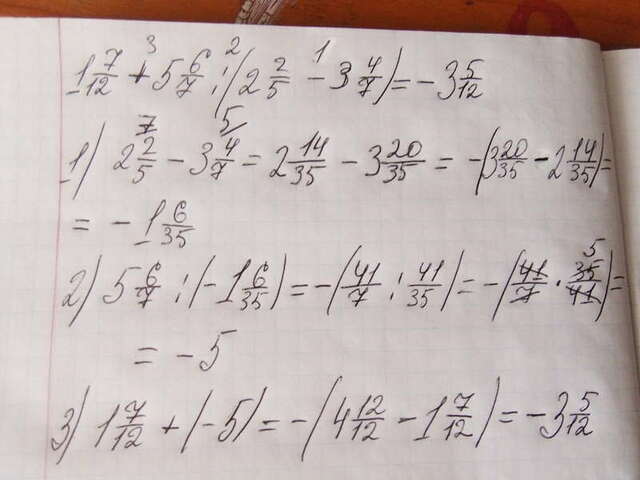 3 2 1
1 7/12 + 5 6/7 : (2 2/5 - 3 4/7) = - 3 5/12
1) 2 2/5 - 3 4/7 = 2 14/35 - 3 20/35 = - (3 20/35 - 2 14/35) =
= - 1 6/35
2) 5 6/7 : (- 1 6/35) = - (41/7 : 41/35) = - (41/7 · 35/41) =
= - 5
3) 1 7/12 + (- 5) = - (4 12/12 - 1 7/12) = - 3 5/12